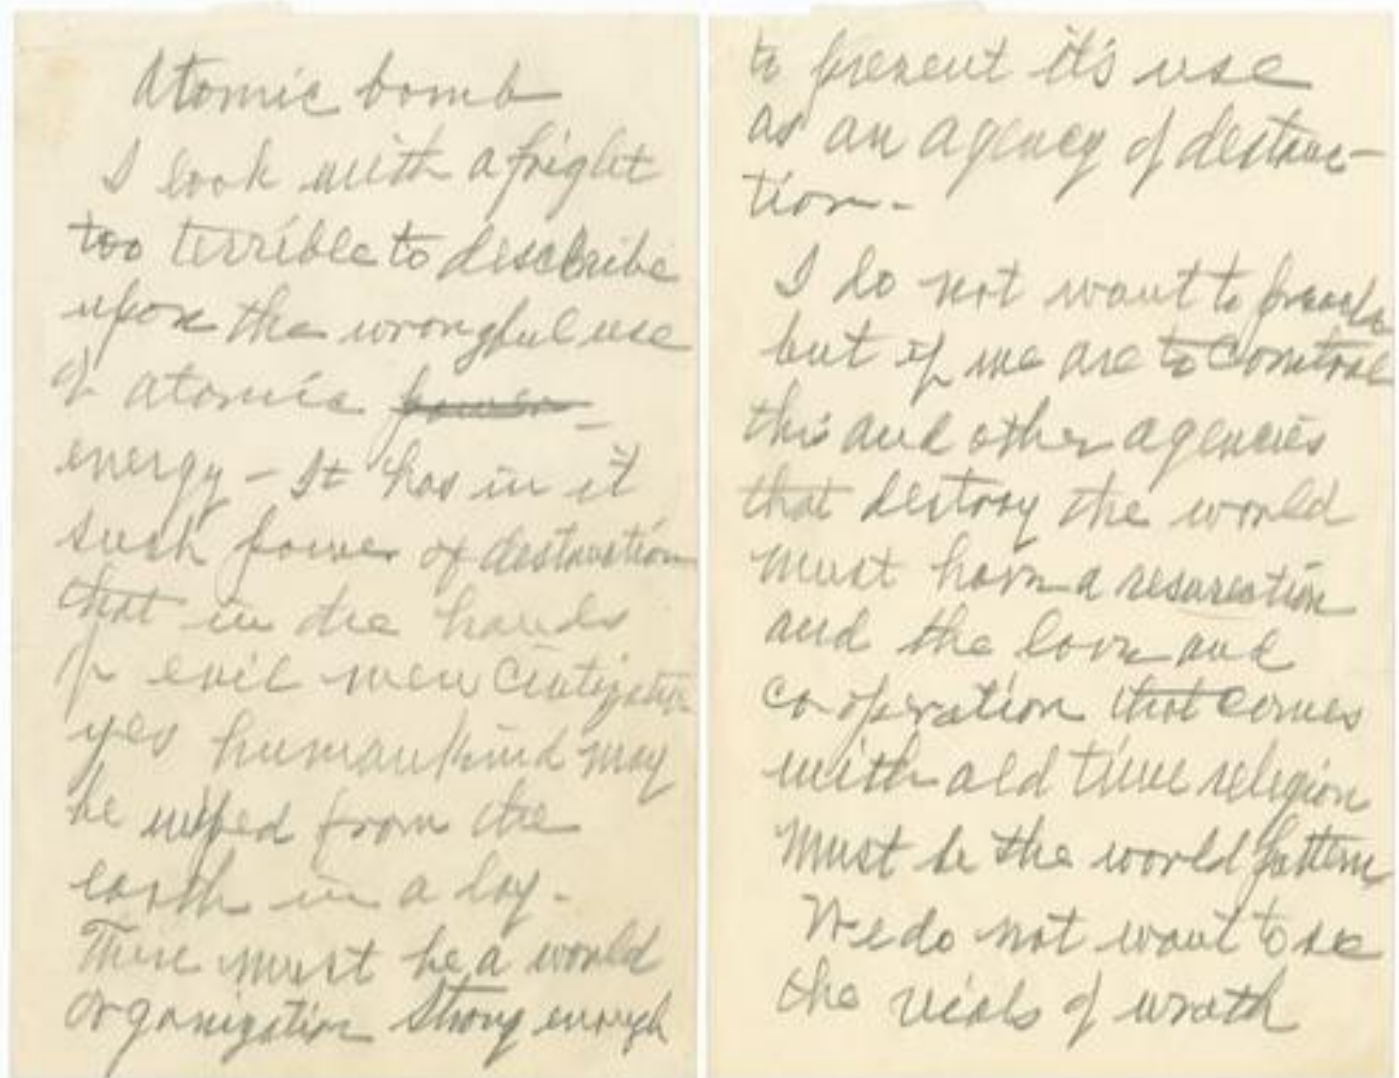 Atomic bomb
I look with a fright
too terrible to describe
upon the wrongful use
of atomic power
energy - It has in it
such power of destruction
that in the hands
of evil men
yes humankind may
be wiped from the
earth in a day.
There must be a world
organization strong enough
to prevent it's use
as an agency of destruc-
tion.
I do not want to preach
but if we are to control
this and other agencies
that destroy the world
must have a
and the love and
co-operation that comes
with old time religion
must be the world pattern
We do not want to see
the vials of wrath